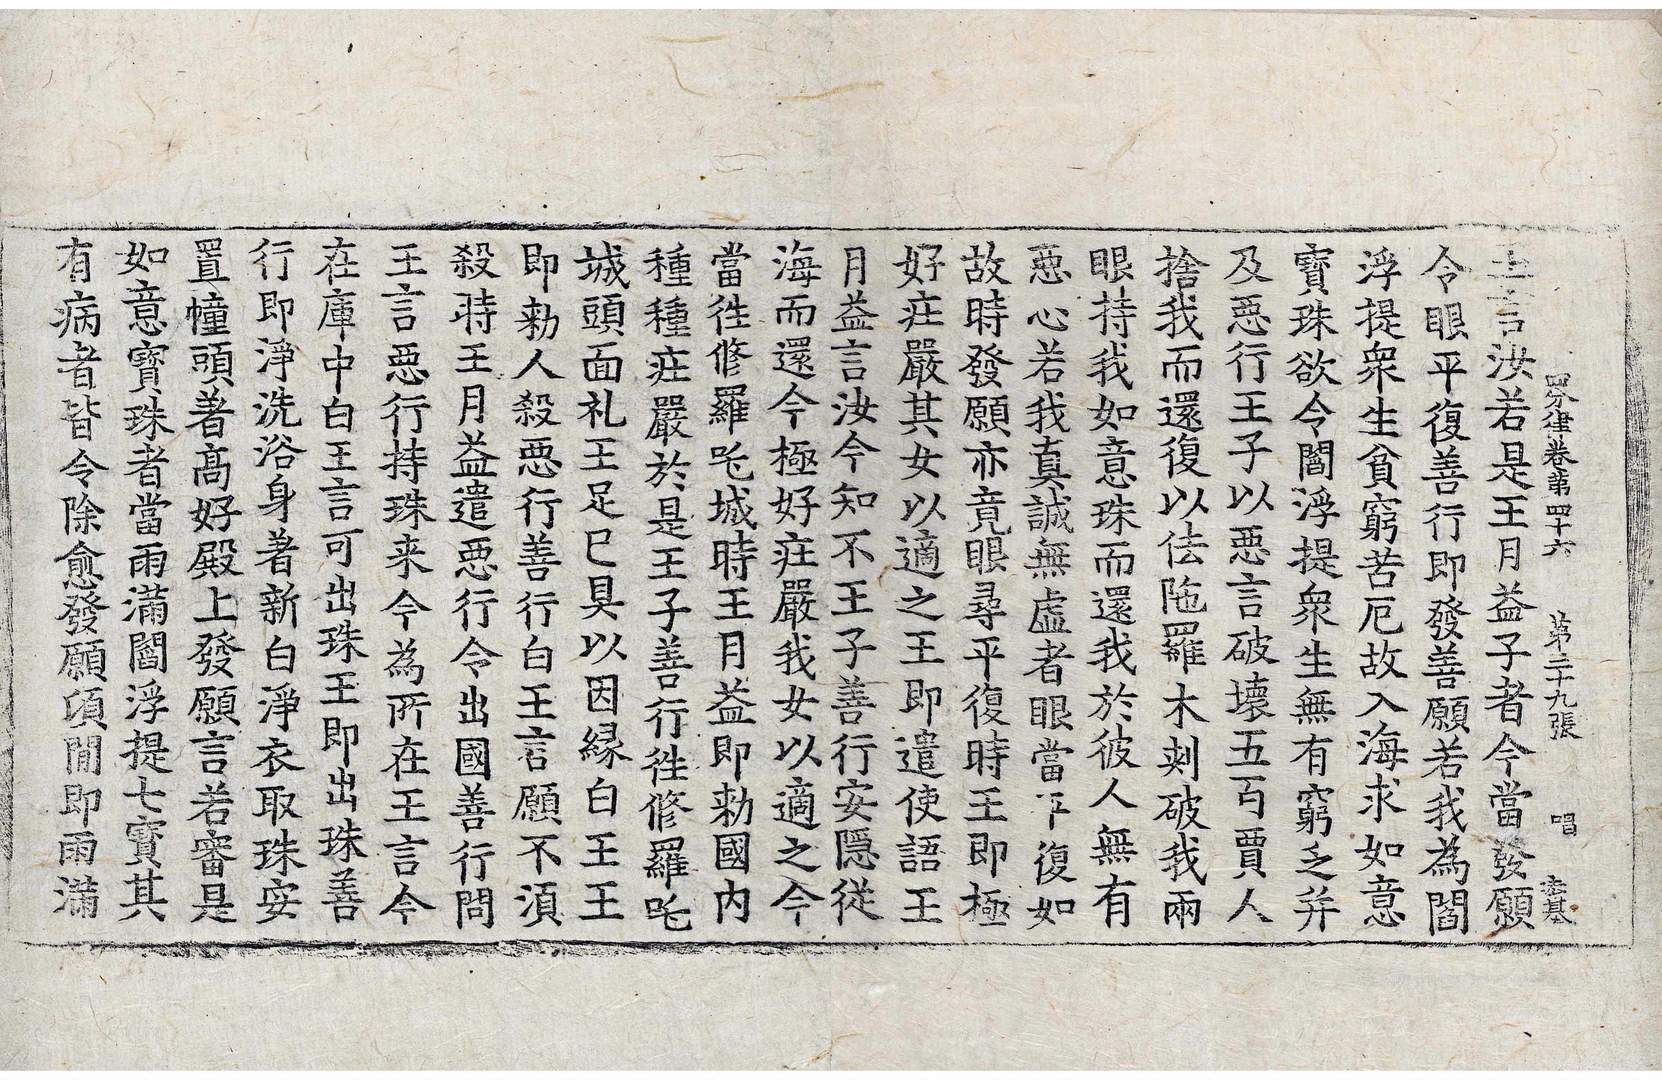 四分律卷第四十六 第三十九張 唱
王言汝若是王月益子者今當發願
令眼平復善行即發善願若我為閻
浮提衆生貧窮苦厄故入海求如意
寶珠欲令閻浮提衆生無有窮乏并
及惡行王子以惡言破壞五百賈人
捨我而還復以佉陁羅木刺破我兩
眼持我如意珠而還我於彼人無有
惡心若我真誠無虛者眼當平復如
故時發願亦竟眼尋平復時王即極
好莊嚴其女以適之王即遣使語王
月益言汝今知不王子善行安隱從
海而還今極好莊嚴我女以適之今
當徃修羅吒城時王月益即勑國內
種種莊嚴於是王子善行徃修羅吒
城頭面礼王足已具以因緣白王王
即勑人殺惡行善行白王言願不須
殺時王月益遣惡行令出國善行問
王言惡行持珠来今為所在王言今
在庫中白王言可出珠王即出珠善
行即淨洗浴身著新白淨衣取珠安
置幢頭著高好殿上發願言若審是
如意寶珠者當雨滿閻浮提七寶其
有病者皆令除愈發願須閒即雨滿